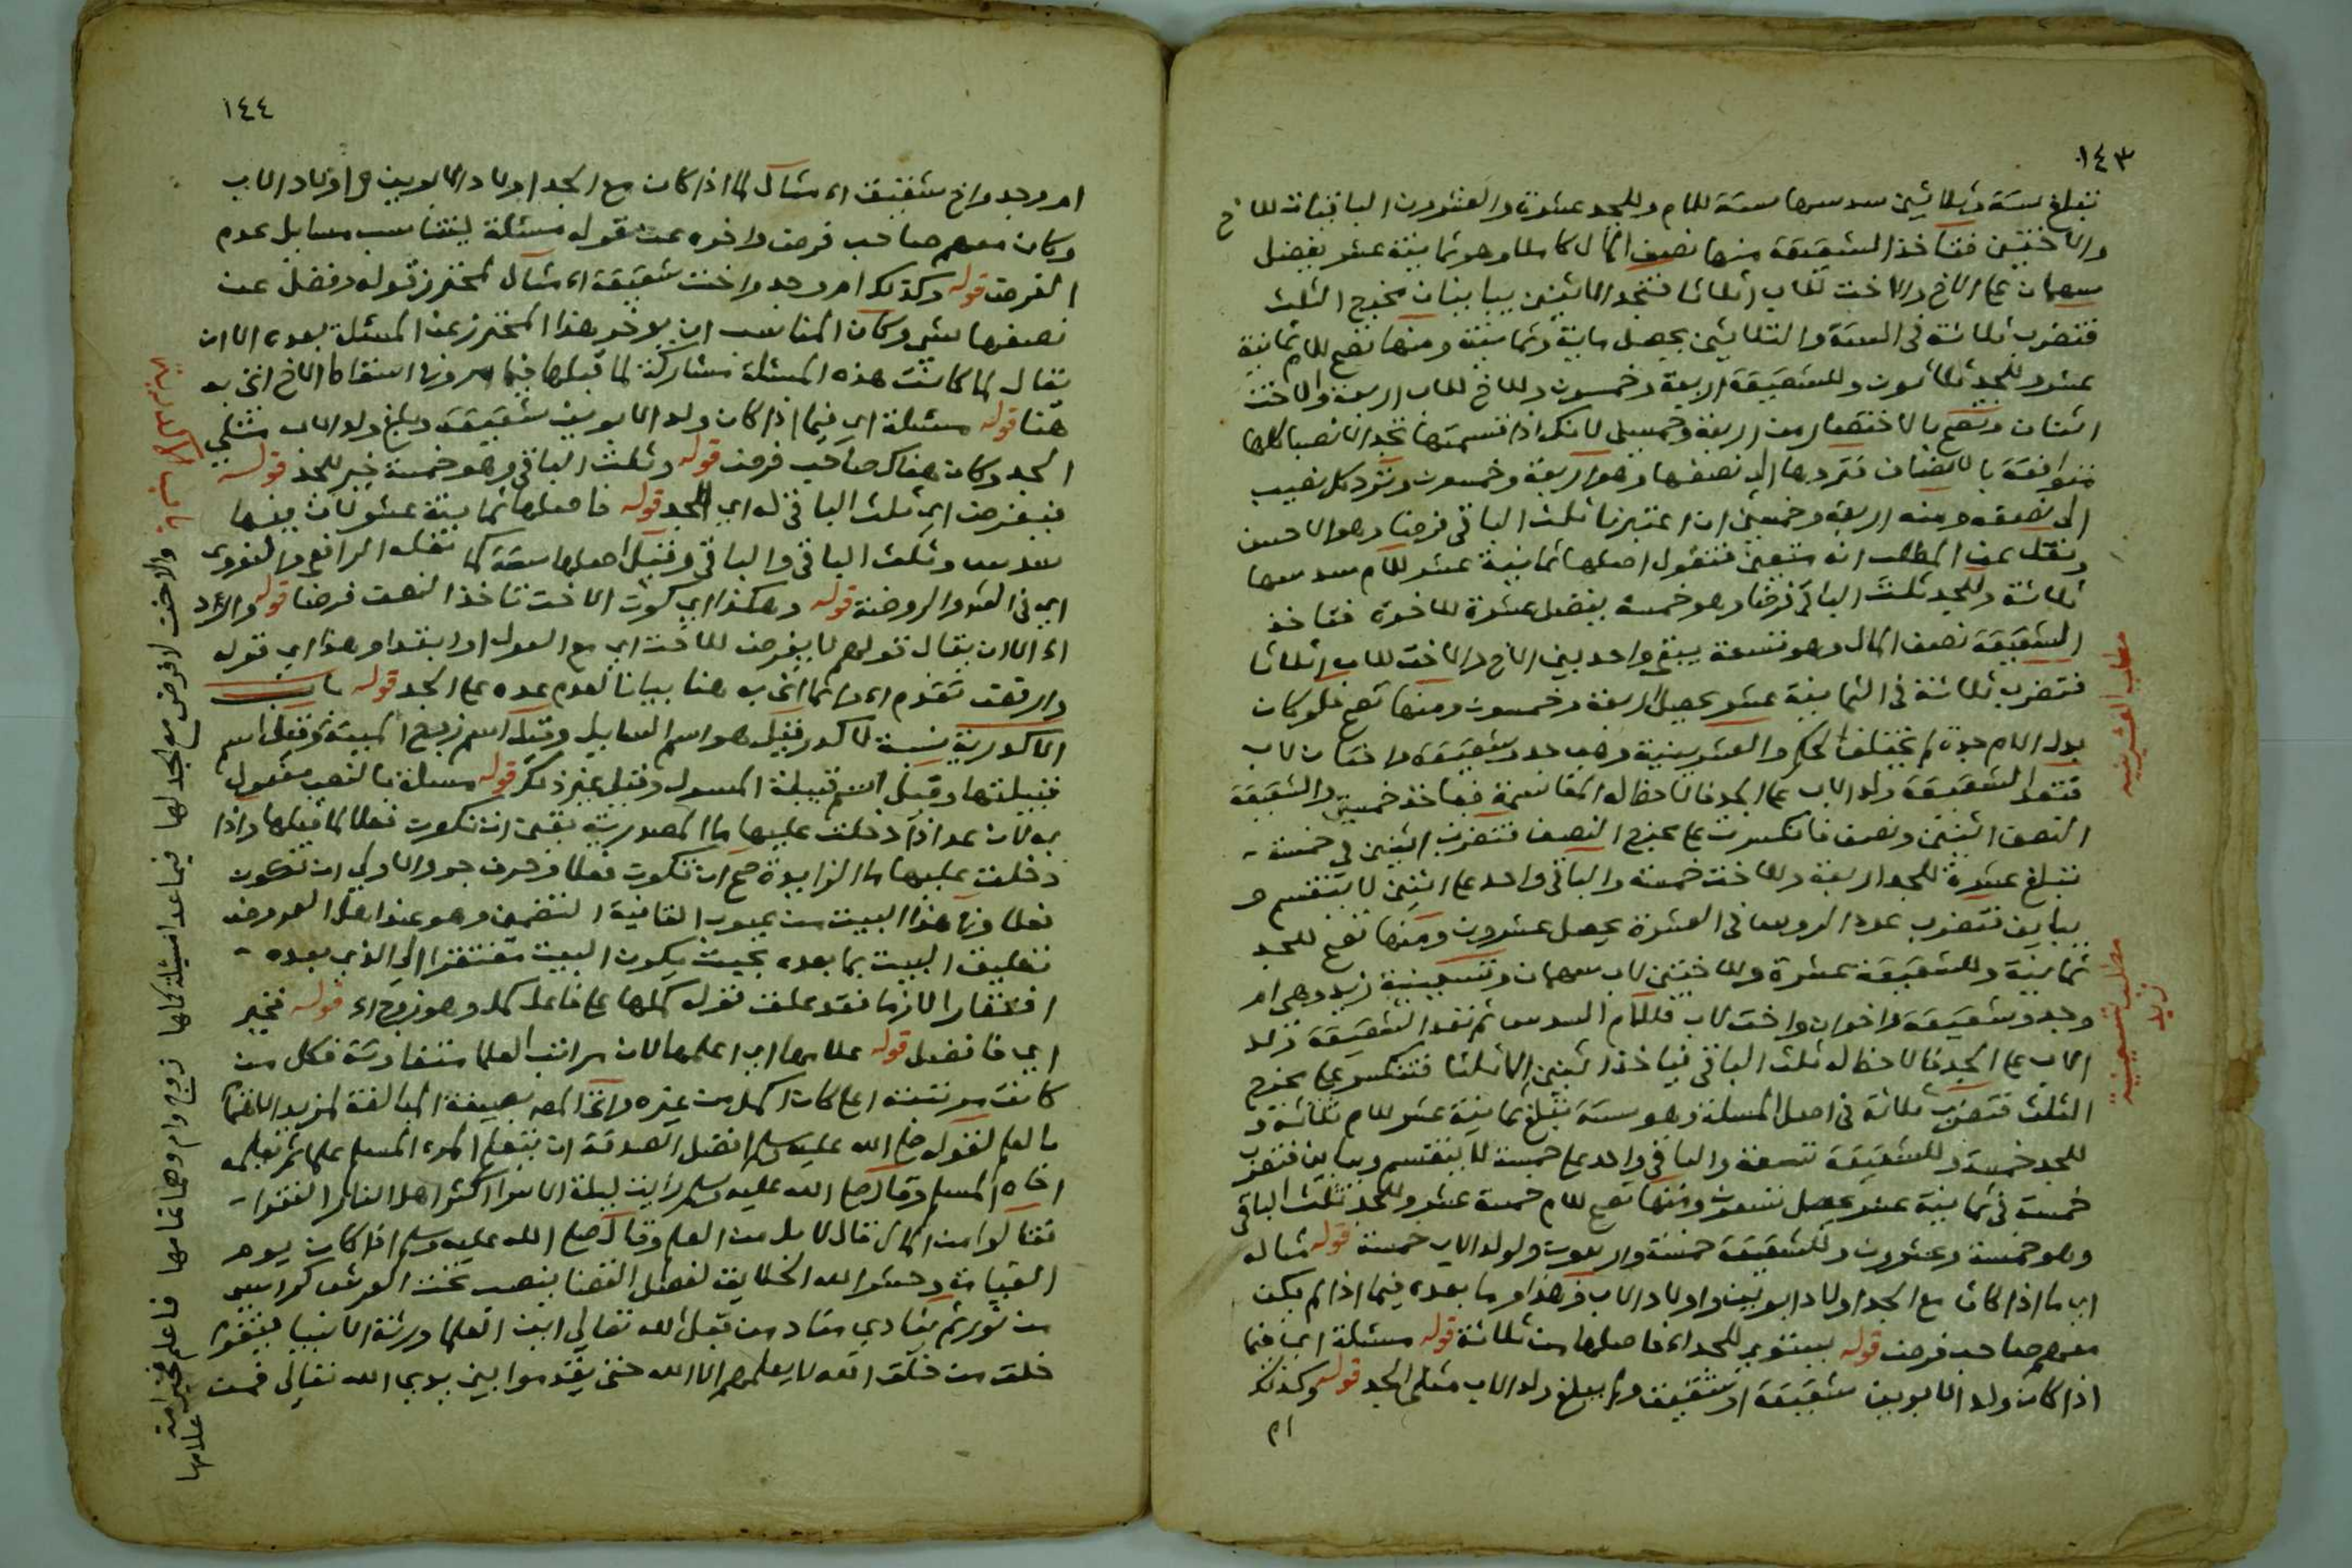 ١٤٣
تبلغ ستة وثلاثين سدسها ستة للام وللجد عشرة والعشرون الباقيات للاخ
والاختين فتاخذ الشقيقة منها نصف المال كاملا وهو ثمانية عشر يفضل
سهمان على الاخ والاخت للاب اثلاثا فتجد الاثنين يباينان مخرج الثلث
فتضرب ثلاثة في الستة والثلاثين يحصل ماية وثمانية ومنها تصح للام ثمانية
عشر وللجد ثلاثون وللشقيقة اربعة وخمسون وللاخ للاب اربعة والاخت
اثنان وتصح بالاختصار من اربعة وخمسين لانك اذا قسمتها تجد الانصبا كلها
متوافقة بالانصاف فتردها الى نصفها وهو اربعة وخمسون وترد كل نصيب
الى نصفه ومنه اربعة وخمسين ان اعتبرنا ثلث الباقي فرضا وهو الاحسن
ونقل عن المطلب انه متعين فتقول اصلها ثمانية عشر للام سدسها
ثلاثة وللجد ثلث الباقي فرضا وهو خمسة يفضل عشرة للاخوة فتاخذ
الشقيقة نصف المال وهو تسعة يبقى واحد بين الاخ والاخت للاب اثلاثا
فتضرب ثلاثة في الثمانية عشر يحصل اربعة وخمسون ومنها تصح فلو كان
بدل الام جدة لم يختلف الحكم والعشرينية وهي جد وشقيقة واختان لاب
فتعد الشقيقة ولد الاب على الجد فالاحظ له المقاسمة فياخذ خمسين والشقيقة
النصف اثنين ونصف فانكسرت على مخرج النصف فتضرب اثنين في خمسة
تبلغ عشرة للجد اربعة وللاخت خمسة والباقي واحد على اثنين لا ينقسم و
يباين فتضرب عدد الروس في العشرة يحصل عشرون ومنها تصح للجد
ثمانية وللشقيقة عشرة وللاختين لاب سهمان وتسعينية زيد وهي ام
وجد وشقيقة واخوان واخت لاب فللام السدس ثم تعد الشقيقة ولد
الاب على الجد فالاحظ له ثلث الباقي فياخذ اثنين الا ثلثا فتنكسر على مخرج
الثلث فتضرب ثلاثة في اصل المسئلة وهو ستة تبلغ ثمانية عشر للام ثلاثة و
للجد خمسة وللشقيقة تسعة والباقي واحد على خمسة لا ينقسم ويباين فتضرب
خمسة في ثمانية عشر يحصل تسعون ومنها تصح للام خمسة عشر وللجد ثلث الباقي
وهو خمسة وعشرون وللشقيقة خمسة واربعون ولولد الاب خمسة قوله مثاله
اي ما اذا كان مع الجد اولاد ابوين واولاد الاب فهذا وما بعده فيما اذا لم يكن
معهم صاحب فرض قوله يستوي للجد اه فاصلها من ثلاثة قوله مسئلة اي فيما
اذا كان ولد الابوين شقيقة او شقيق ولم يبلغ ولد الاب مثلي الجد قوله وكذلك
ام
مطلب العشرينيه
مطلب تسعينيه
زيد
١٤٤
ام وجد واخ شقيق اه مثال لما اذا كان مع الجد اولاد الابوين واولاد الاب
وكان معهم صاحب فرض واخره عن قوله مسئلة ليتناسب مسايل عدم
الفرض قوله وكذلك ام وجد واخت شقيقة اه مثال لمحترز قوله وفضل عن
نصفها شي وكان المناسب ان يوخر هذا المحترز عن المسئلة بعده الا ان
يقال لما كانت هذه المسئلة مشاركة لما قبلها فيما اسقاط الاخ اتى به
هنا قوله مسئلة اي فيما اذا كان ولد الابوين شقيقة وبلغ ولد الاب مثلي
الجد وكان هناك صاحب فرض قوله وثلث الباقي وهو خمسة خير للجد قوله
فيفرض اي ثلث الباقي له اي للجد قوله فاصلها ثمانية عشر لان فيها
سدس وثلث الباقي والباقي وقيل اصلها ستة كما نقله الرافعي والنووي
اي في الشرح والروضة قوله وهكذا اي كون الاخت تاخذ النصف فرضا قوله والا يرد
اه الا ان يقال قولهم لا يفرض للاخت اي مع العول او ابتداء وهذا اي قوله
وارتفق تقدم اه وانما اتى به هنا بيانا لعدم عده على الجد قوله باب
الاكدرية نسبة لاكدر فقيل هو اسم السايل وقيل اسم زوج الميتة وقيل اسم
قبيلتها وقيل اسم قبيلة المسول وقيل غير ذلك قوله مسلة بالنصب مفعول
به لان عدا اذا دخلت عليها ما المصدرية يقين ان تكون فعلا لما قبلها واذا
دخلت عليها ما الزايدة صح ان تكون فعلا وحرف جر والاولى ان تكون
فعلا وفي هذا البيت من عيوب القافية التضمين وهو عند اهل العروض
تعليق البيت بما بعده بحيث يكون البيت مفتقرا الى الذي بعده
افتقارا لازما فقد علق قوله كملها على فاعل كمل وهو زوج اه قوله فخير
اي فافضل قوله علامها اي اعلمها لان مراتب العلما متفاوتة فكل من
كانت مرتبته اعلا كان اكمل من غيره وانما اتى المص بصيغة المبالغة لمزيد الاعتنا
بالعلم لقوله صلى الله عليه وسلم افضل الصدقة ان يتعلم المرء المسلم علما ثم يعلمه
اخاه المسلم وقال صلى الله عليه وسلم رايت ليلة الاسرا اكثر اهل النار الفقرا
فقالوا من المال قال لا بل من العلم وقال صلى الله عليه وسلم اذا كان يوم
القيامة وحشر الله الخلايق لفصل القضا ينصب تحت العرش كراسي
من نور ثم ينادي مناد من قبل الله تعالى اين العلما ورثة الانبيا فيقوم
خلق من خلق الله لا يعلمهم الا الله حتى يقدموا بين يدي الله تعالى فمن
باب الاكدرية
والاخت لا فرض مع الجد لها فيما عدا مسئلة كملها زوج وام وهما تمامها فاعلم فخير امة
علامها